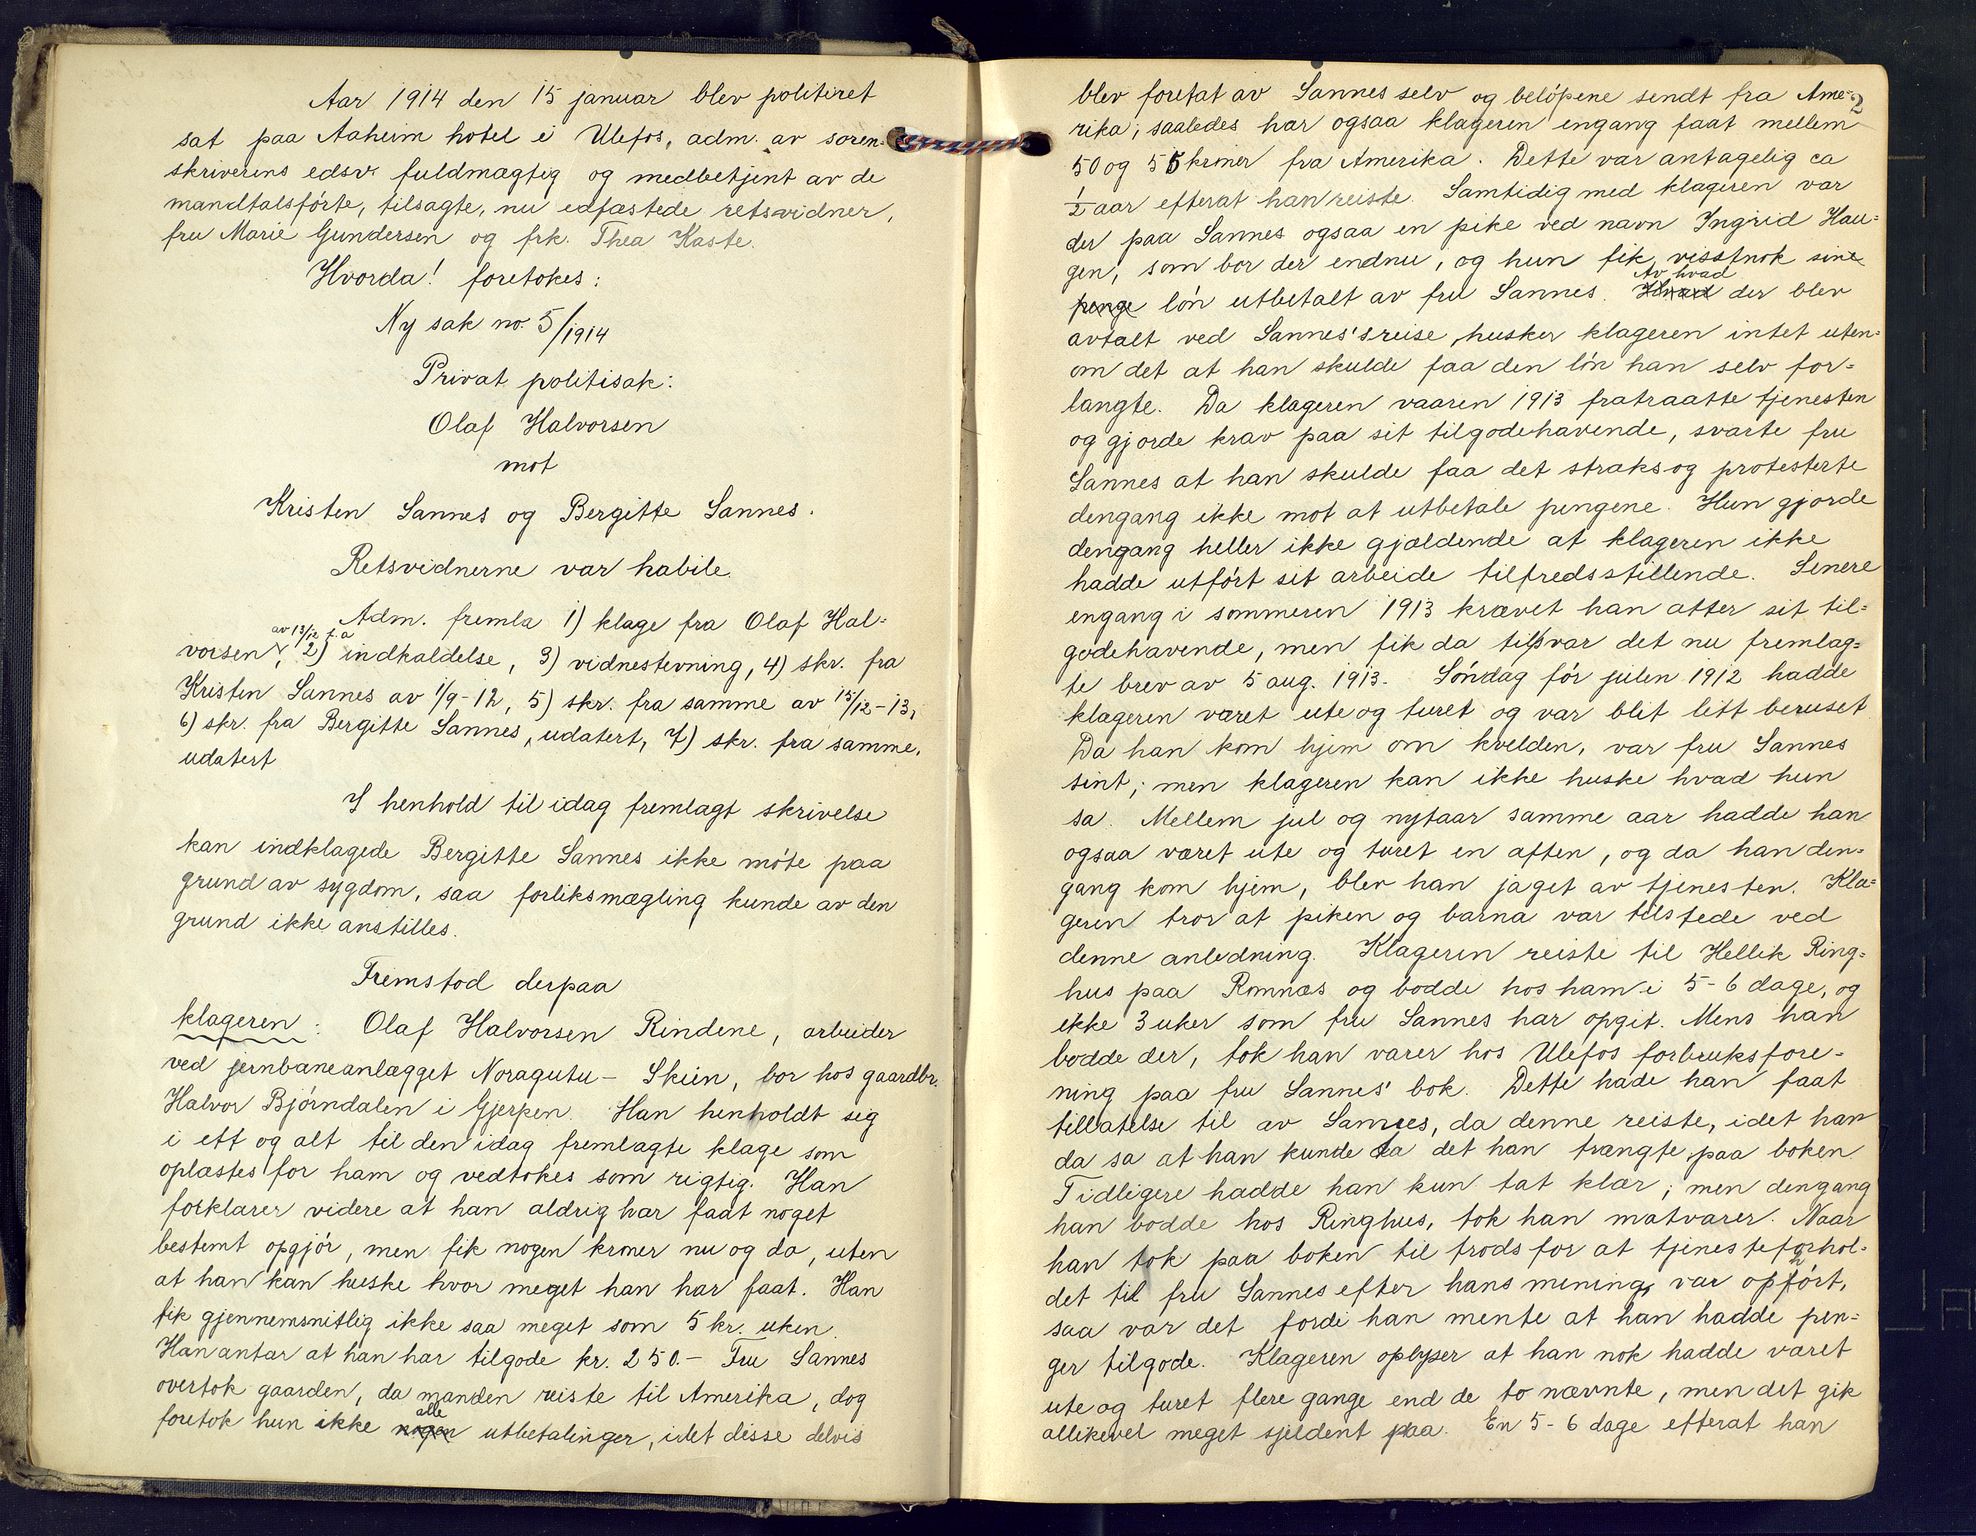 Aar 1914 den 15 januar blev politiret
sat paa Aaheim hotel i Ulefos, adm. av soren-
skriverens edsv. fuldmægtig og medbetjent av de
mandtalsførte, tilsagte, nu edfæstede retsvidner,
fru Marie Gundersen og frk. Thea Kaste.
Hvorda! foretokes:
Ny sak no. 5/1914
Privat politisak:
Olaf Halvorsen
mot
Kristen Sannes og Bergitte Sannes.
Retsvidnerne var habile.
Adm. fremla 1) klage fra Olaf Hal-
av 13/12 f.a
vorsen, 2) indkaldelse, 3) vidnestevning, 4) skr. fra
Kristen Sannes av 1/9-12, 5) skr. fra samme av 15/12-13,
6) skr. fra Bergitte Sannes, udatert, 7) skr. fra samme,
udatert
I henhold til idag fremlagt skrivelse
kan indklagede Bergitte Sannes ikke møte paa
grund av sygdom, saa forliksmægling kunde av den
grund ikke anstilles.
Fremstod derpaa
klageren: Olaf Halvorsen Rindene, arbeider
ved jernbaneanlægget Noragutu - Skien, bor hos gaardbr.
Halvor Bjørndalen i Gjerpen. Han henholdt seg
i ett og alt til den idag fremlagte klage som
oplæstes for ham og vedtokes som rigtig. Han
forklarer videre at han aldrig har faat noget
bestemt opgjør, men fik nogen kroner nu og da, uten
at han kan huske hvor meget han har faat. Han
fik gjennemsnitlig ikke saa meget som 5 kr. uken.
Han antar at han har tilgode kr. 250.- Fru Sannes
overtok gaarden, da manden reiste til Amerika, dog
alle
foretok hun ikke nogen utbetalinger, idet disse delvis
2
blev foretat av Sannes selv og beløpene sendt fra Ame-
rika; saaledes har ogsaa klageren engang faat mellem
50 og 55 kroner fra Amerika. Dette var antagelig ca
1/2 aar efterat han reiste. Samtidig med klageren var
der paa Sannes ogsaa en pike ved navn Ingrid Hau-
gen, som bor der endnu, og hun fik visstnok sine
Av hvad
penge løn utbetalt av fru Sannes. Hvad der blev
avtalt ved Sannes's reise, husker klageren intet uten-
om det at han skulde faa den løn han selv for-
langte. Da klageren vaaren 1913 fratraatte tjenesten
og gjorde krav paa sit tilgodehavende, svarte fru
Sannes at han skulde faa det straks og protesterte
dengang ikke mot at utbetale pengene. Hun gjorde
dengang heller ikke gjældende at klageren ikke
hadde utført sit arbeide tilfredsstillende. Senere
engang i sommeren 1913 krævet han atter sit til-
godehavende, men fik da tilsvar det nu fremlag-
te brev av 5 aug. 1913. Søndag før julen 1912 hadde
klageren været ute og turet og var blit lett beruset.
Da han kom hjem om kvelden, var fru Sannes
sint, men klageren kan ikke huske hvad hun
sa. Mellem jul og nytaar samme aar hadde han
ogsaa været ute og turet en aften, og da han den-
gang kom hjem, blev han jaget av tjenesten. Kla-
geren tror at piken og barna var tilstede ved
denne anledning. Klageren reiste til Hellik Ring-
hus paa Romnæs og bodde hos ham i 5-6 dage, og
ikke 3 uker som fru Sannes har opgit. Mens han
bodde der, tok han varer hos Ulefos forbruksfore-
ning paa fru Sannes' bok. Dette hade han faat
tillatelse til av Sannes, da denne reiste, idet han
da sa at han kunde ta det han trængte paa boken.
Tidligere hadde han kun tat klær; men dengang
han bodde hos Ringhus, tok han matvarer. Naar
han tok paa boken til trods for at tjenesteforhol-
det til fru Sannes efter hans mening, var ophørt,
saa var det fordi han mente at han hadde pen-
ger tilgode. Klageren oplyser at han nok hadde været
ute og turet flere gange end de to nævnte, men det gik
allikevel meget sjeldent paa. En 5-6 dage efterat han